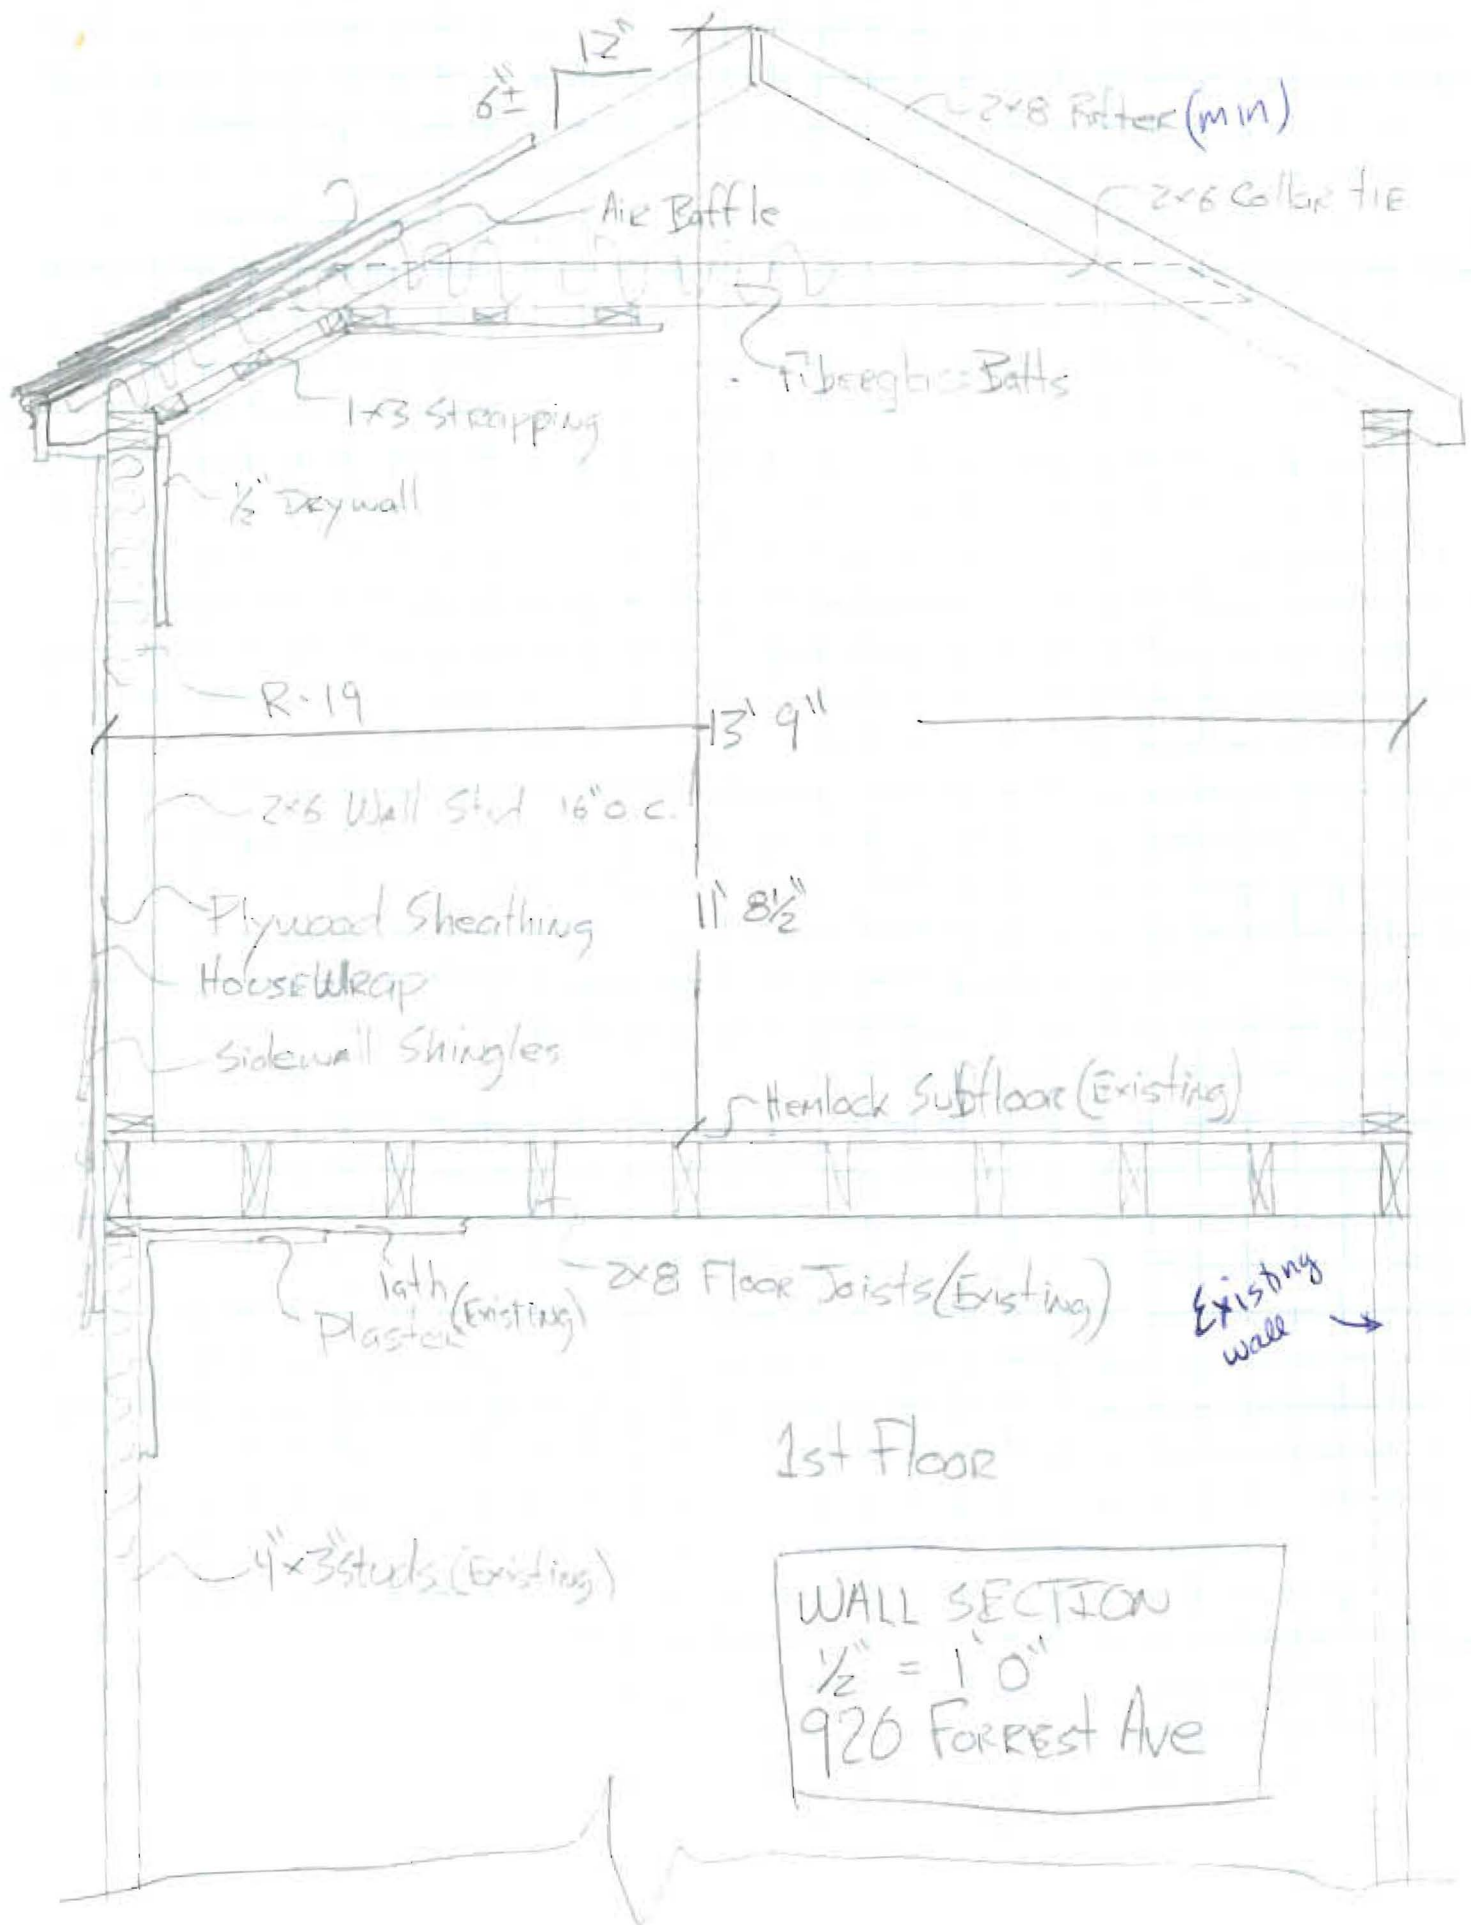 12"
6"±
2x8 Rafter (min)
2x6 Collar tIE
AiR Baffle
Fiberglass Batts
1x3 StRapping
½" DRywall
R-19
13' 9"
2x6 Wall Stud 16" o.c.
11' 8½"
Plywood Sheathing
HouseWRap
Sidewall Shingles
Hemlock Subfloor (Existing)
lath
Plaster (Existing)
2x8 FlooR Joists (Existing)
Existing
wall
1st FlooR
4"x3" studs (Existing)
WALL SECTION
½" = 1' 0"
920 FoRRESt Ave